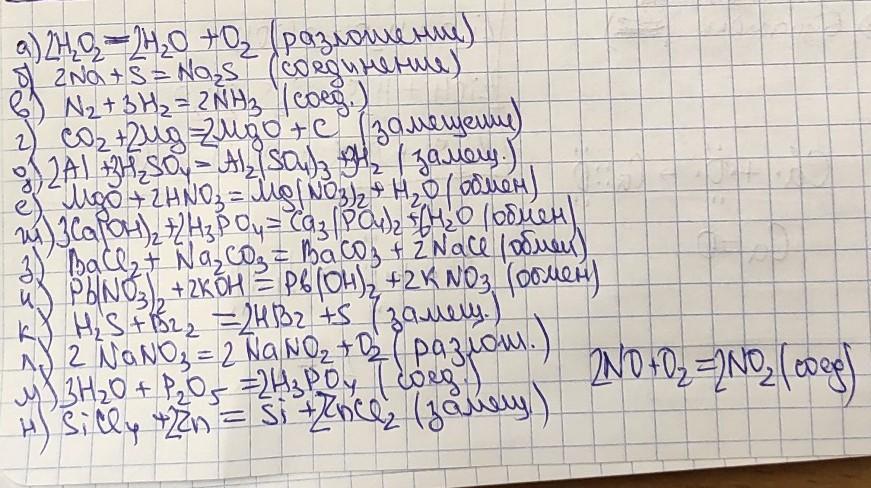 а) 2H₂O₂ = 2H₂O + O₂ (разложение)
б) 2Na + S = Na₂S (соединение)
в) N₂ + 3H₂ = 2NH₃ (соед.)
г) CO₂ + 2Mg = 2MgO + C (замещение)
д) 2Al + 3H₂SO₄ = Al₂(SO₄)₃ + 3H₂ (замещ.)
е) MgO + 2HNO₃ = Mg(NO₃)₂ + H₂O (обмен)
ж) 3Ca(OH)₂ + 2H₃PO₄ = Ca₃(PO₄)₂ + 6H₂O (обмен)
з) BaCl₂ + Na₂CO₃ = BaCO₃ + 2NaCl (обмен)
и) Pb(NO₃)₂ + 2KOH = Pb(OH)₂ + 2KNO₃ (обмен)
к) H₂S + Br₂ = 2HBr + S (замещ.)
л) 2NaNO₃ = 2NaNO₂ + O₂ (разлож.)
м) 3H₂O + P₂O₅ = 2H₃PO₄ (соед.)
н) SiCl₄ + 2Zn = Si + 2ZnCl₂ (замещ.)
2NO + O₂ = 2NO₂ (соед)